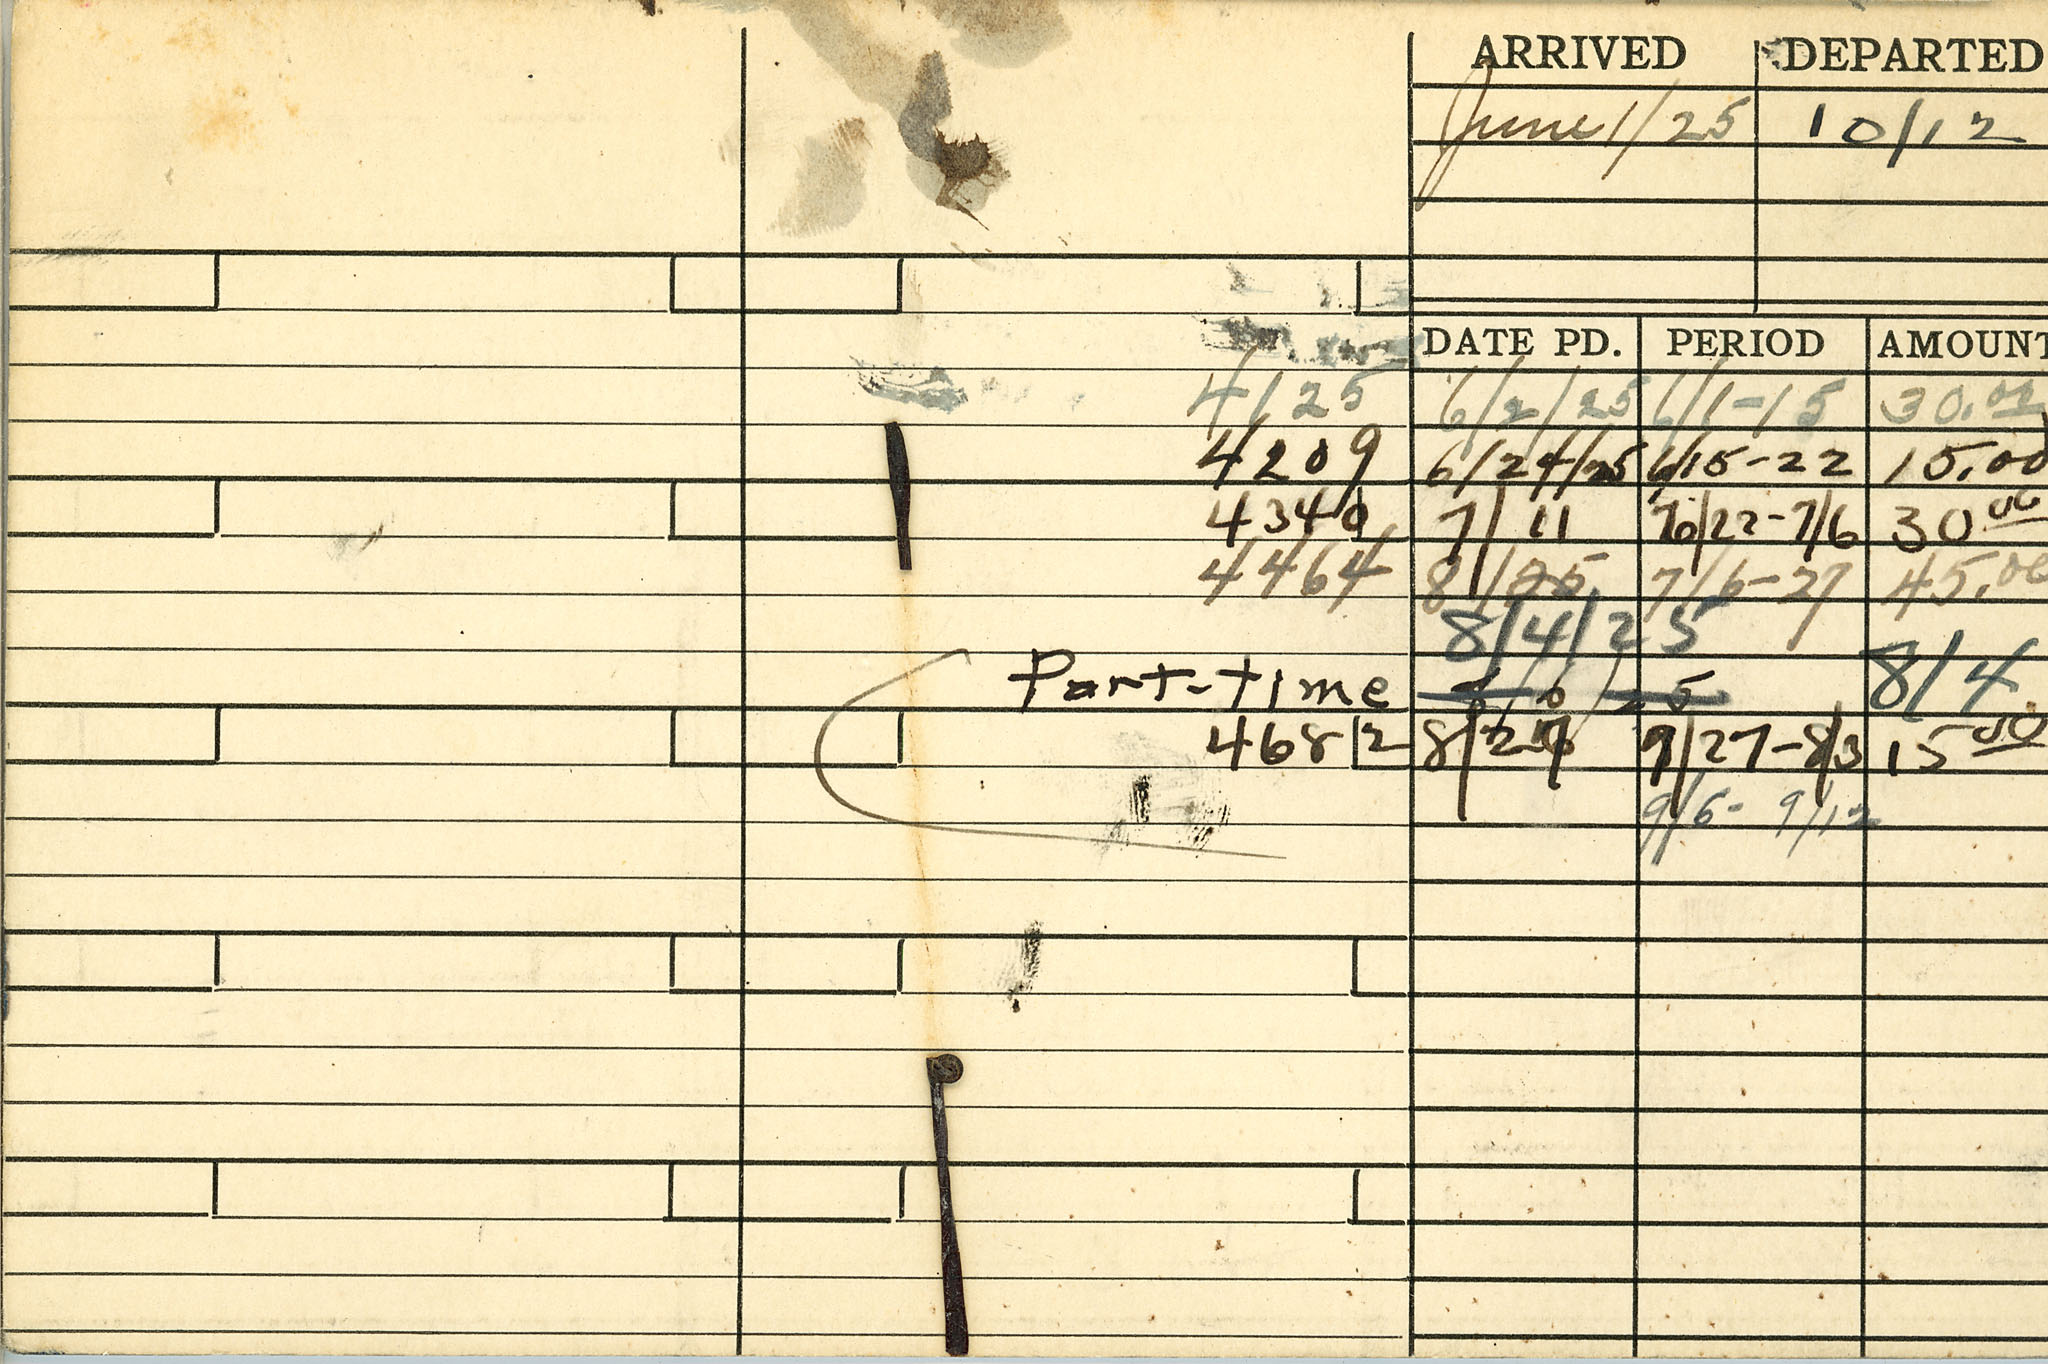 ARRIVED DEPARTED
June 1/25 10/12
DATE PD. PERIOD AMOUNT
4125 6/2/25 6/1-15 30.00
4209 6/24/25 6/15-22 15.00
4340 7/11 6/22-7/6 30 00
4464 8/ 7/6-27 45.00
8/4/25
Part-time 8/4
4682 8/2 /27-8/3 15 00
9/6- 9/12